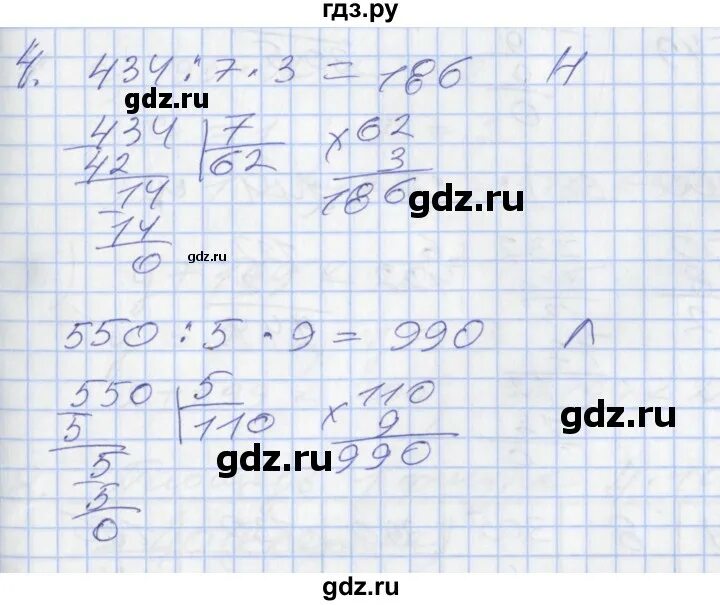 гдз.ру
4. 434 : 7 · 3 = 186 Н
gdz.ru
434 | 7
42 | 62
14
14
0
× 62
3
186
gdz.ru
gdz.ru
550 : 5 · 9 = 990 Л
550 | 5
5 | 110
5
5
0
× 110
9
990
gdz.ru
gdz.ru
gdz.ru